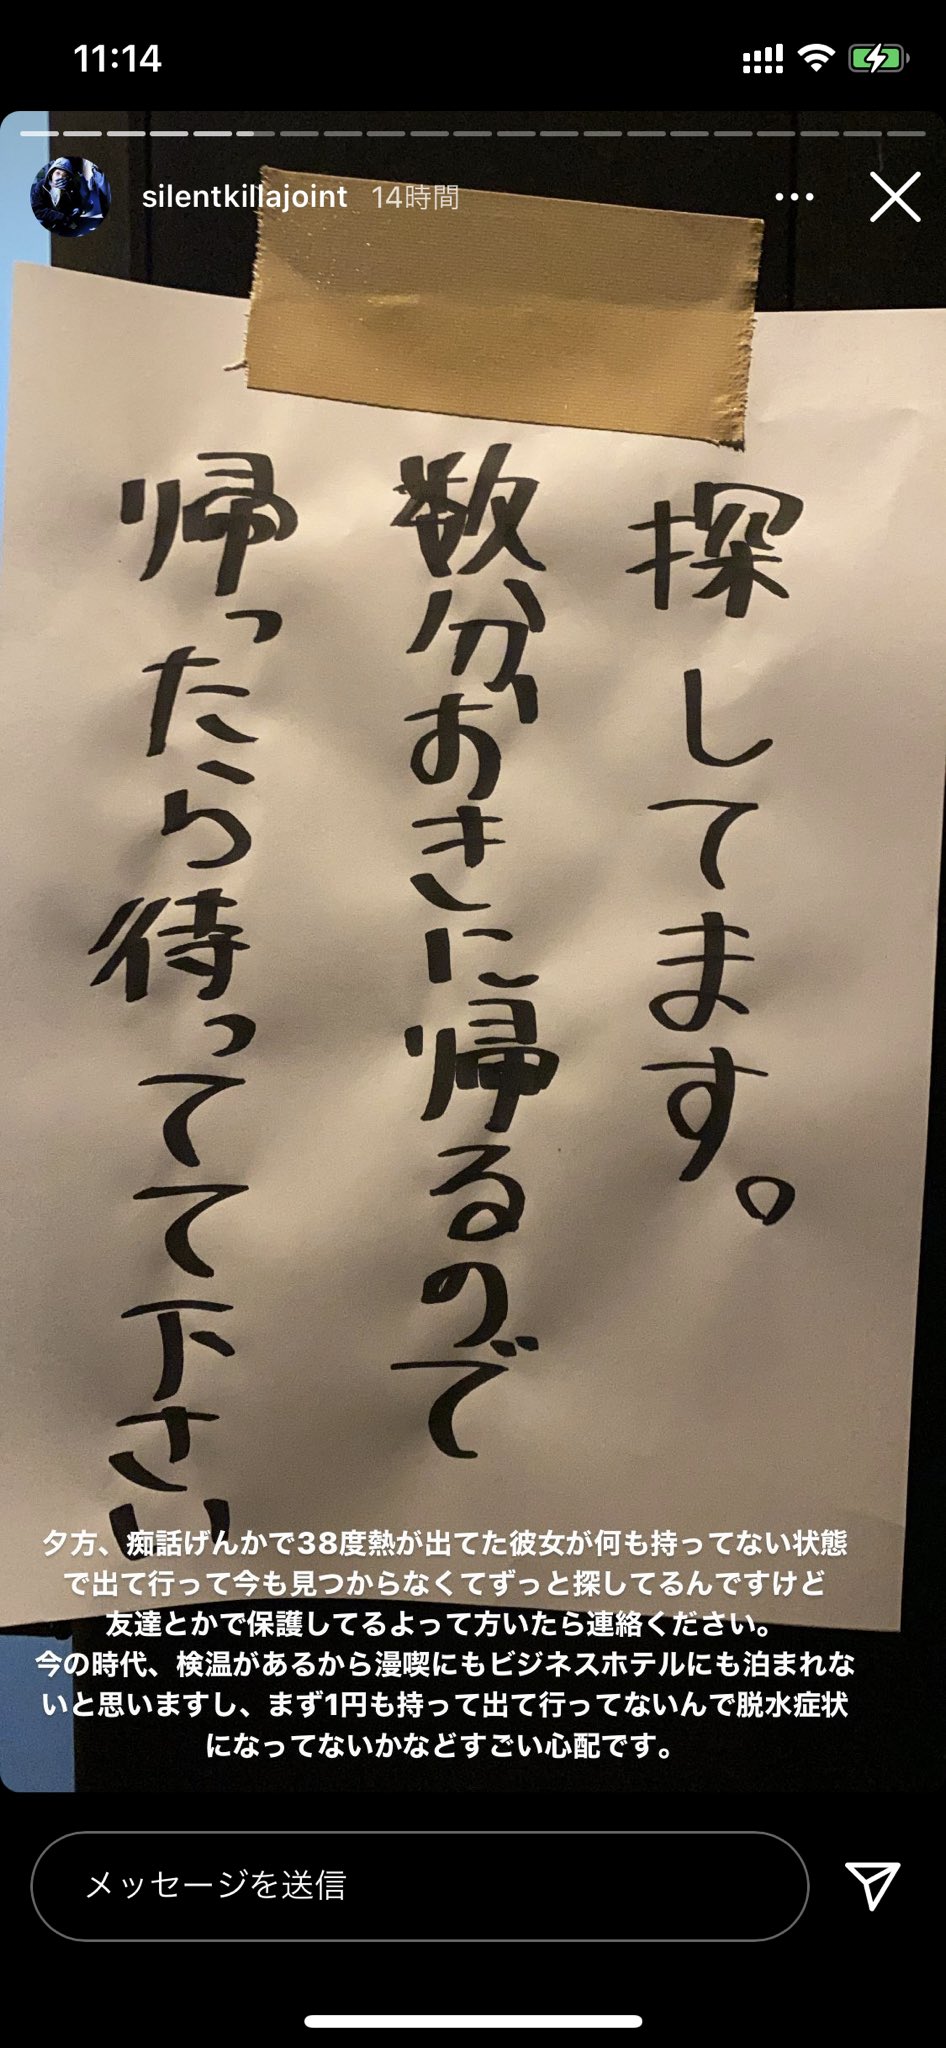 11:14
silentkillajoint 14時間
探してます。
数分おきに帰るので
帰ったら待ってて下さい
夕方、痴話げんかで38度熱が出てた彼女が何も持ってない状態
で出て行って今も見つからなくてずっと探してるんですけど
友達とかで保護してるよって方いたら連絡ください。
今の時代、検温があるから漫喫にもビジネスホテルにも泊まれな
いと思いますし、まず1円も持って出て行ってないんで脱水症状
になってないかなどすごい心配です。
メッセージを送信